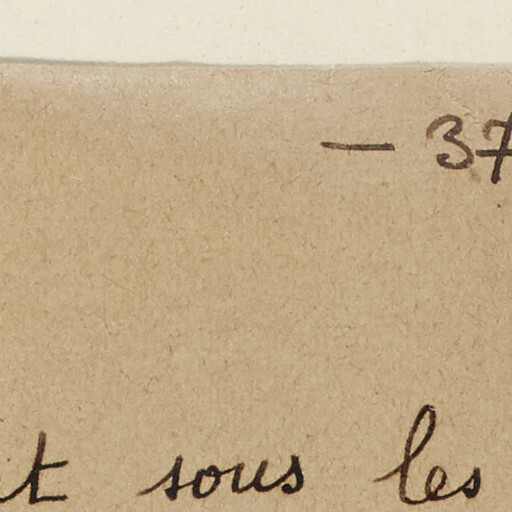 — 37
sous les